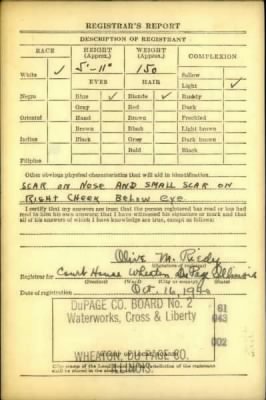 REGISTRAR'S REPORT
DESCRIPTION OF REGISTRANT
RACE HEIGHT (Approx.) WEIGHT (Approx.) COMPLEXION
White ✓ 5'-11" 150 Sallow
EYES HAIR Light ✓
Negro Blue ✓ Blonde ✓ Ruddy
Gray Red Dark
Oriental Hazel Brown Freckled
Brown Black Light brown
Indian Black Gray Dark brown
Bald Black
Filipino
Other obvious physical characteristics that will aid in identification
SCAR ON NOSE AND SMALL SCAR ON
RIGHT CHEEK Below eye
I certify that my answers are true; that the person registered has read or has had
read to him his own answers; that I have witnessed his signature or mark and that
all of his answers of which I have knowledge are true, except as follows:
Olive M.
Registrar for Court House Wheaton DuPage Illinois
Date of registration Oct. 16, 1940
DuPAGE CO. BOARD No. 2
Waterworks, Cross & Liberty
61
043
002
WHEATON, DuPAGE CO.
ILLINOIS.